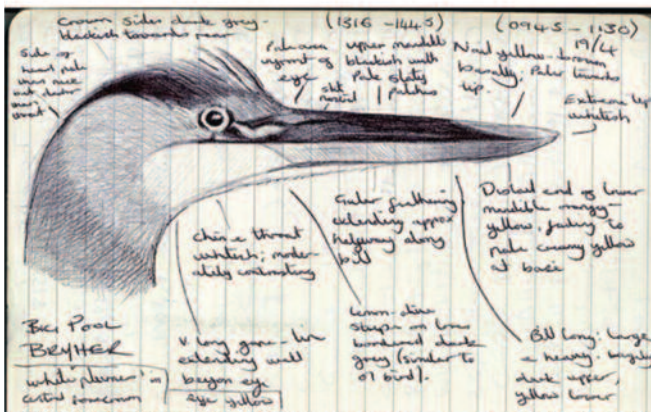 Crown sides dark grey -
blackish towards rear
(1316 - 1445)
(0945 - 1130)
19/4
Side of
head pale
Pale area
upfront of
eye
upper mandible
blackish with
Pale slaty
patches
slit
nostril
Nail yellow-brown
basally; Paler towards
tip.
Extreme tip
whitish
Chin & throat
whitish; moder-
ately contrasting
Gular feathering
extending approx
halfway along
bill
Distal end of lower
mandible mangy-
yellow, fading to
pale creamy yellow
at base
BIG POOL
BRYHER
'white plumes' in
central forecrown
V. long gape-line
extending well
beyond eye
eye yellow
Lemon-olive
stripe on lores
bordered dark
grey (similar to
01 bird).
Bill long; large
& heavy; largely
dark upper,
yellow lower